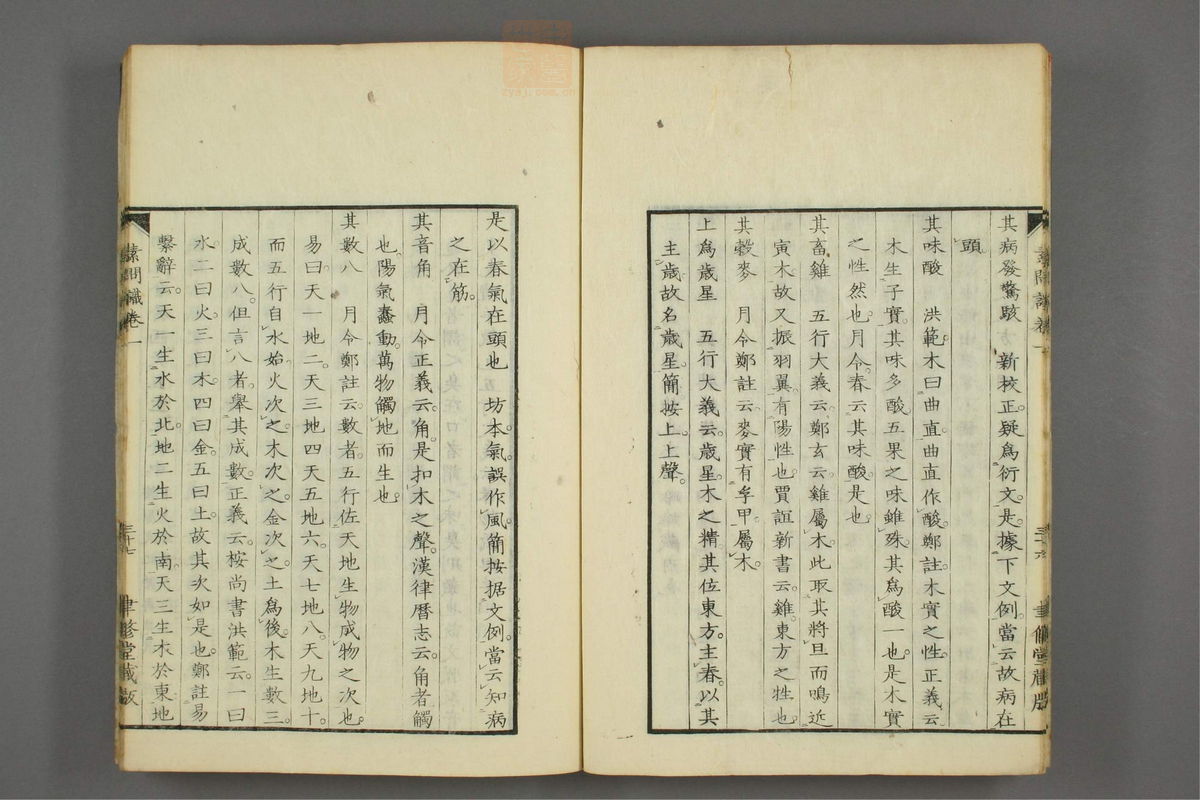 其病發驚駭　新校正疑爲衍文是據下文例當云故病在
頭
其味酸　洪範木曰曲直曲直作酸鄭註木實之性正義云
木生子實其味多酸五果之味雖殊其爲酸一也是木實
之性然也月令春云其味酸是也
其畜雞　五行大義云鄭玄云雞屬木此取其將旦而鳴近
寅木故又振羽翼有陽性也賈誼新書云雞東方之牲也
其穀麥　月令鄭註云麥實有孚甲屬木
上爲歲星　五行大義云歲星木之精其位東方主春以其
主歲故名歲星簡按上上聲
是以春氣在頭也　坊本氣誤作風簡按据文例當云知病
之在筋
其音角　月令正義云角是扣木之聲漢律曆志云角者觸
也陽氣蠢動萬物觸地而生也
其數八　月令鄭註云數者五行佐天地生物成物之次也
易曰天一地二天三地四天五地六天七地八天九地十
而五行自水始火次之木次之金次之土爲後木生數三
成數八但言八者舉其成數正義云桉尚書洪範云一曰
水二曰火三曰木四曰金五曰土故其次如是也鄭註易
繫辭云天一生水於北地二生火於南天三生木於東地
素問識卷一
三十七
聿修堂藏版
zysj.com.cn